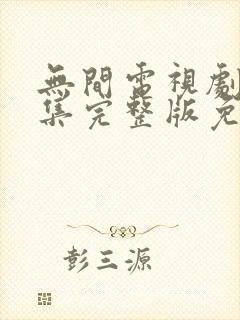 無間電視劇
集完整版免
彭三源